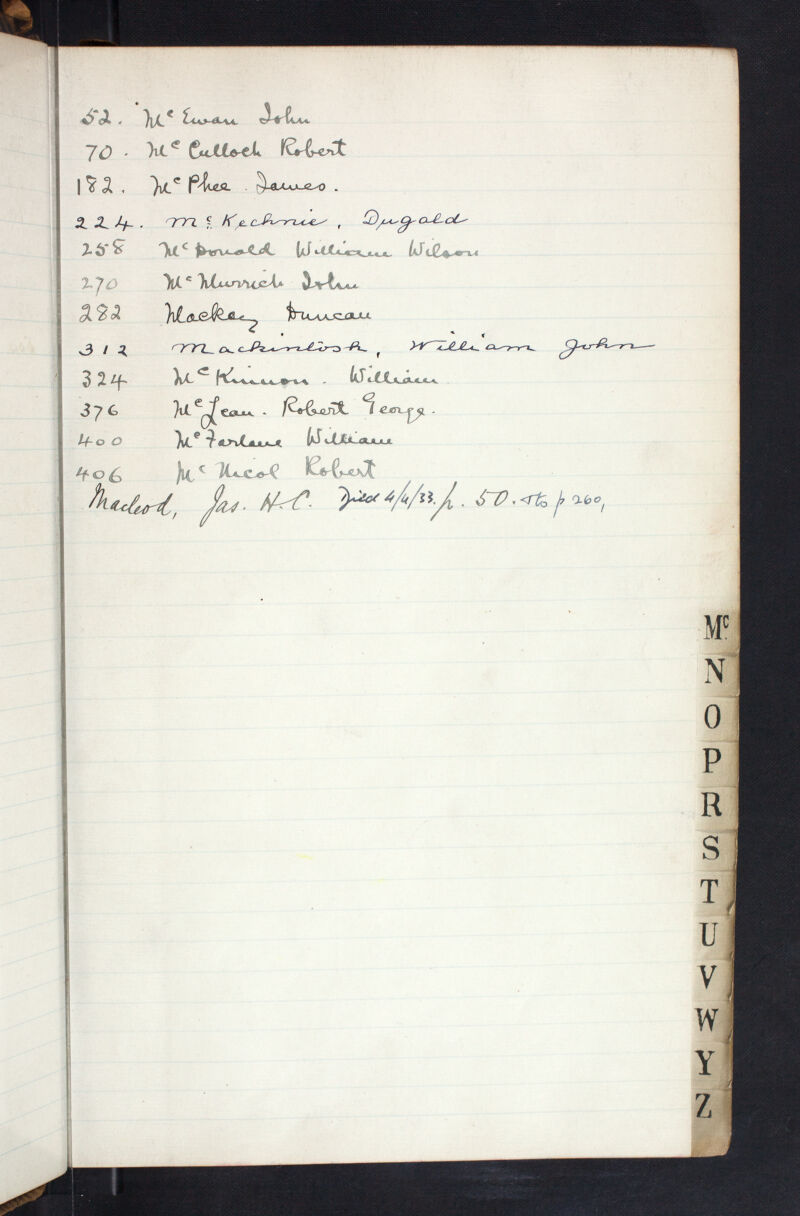 52. McEwan John
70. McCulloch Robert
182. McPhee James.
224. McKechnie, Dugald
258 McDonald William Wilson
270 McMurrich John
282 Mackay Duncan
312 Mackintosh, William John
324 McKinnon. William
376 McLean. Robert George.
400 McFarlane William
406 McNicol Robert
Macleod, Jas. H.C. Died 4/4/33. p. 50. p 260,
Mc
N
O
P
R
S
T
U
V
W
Y
Z